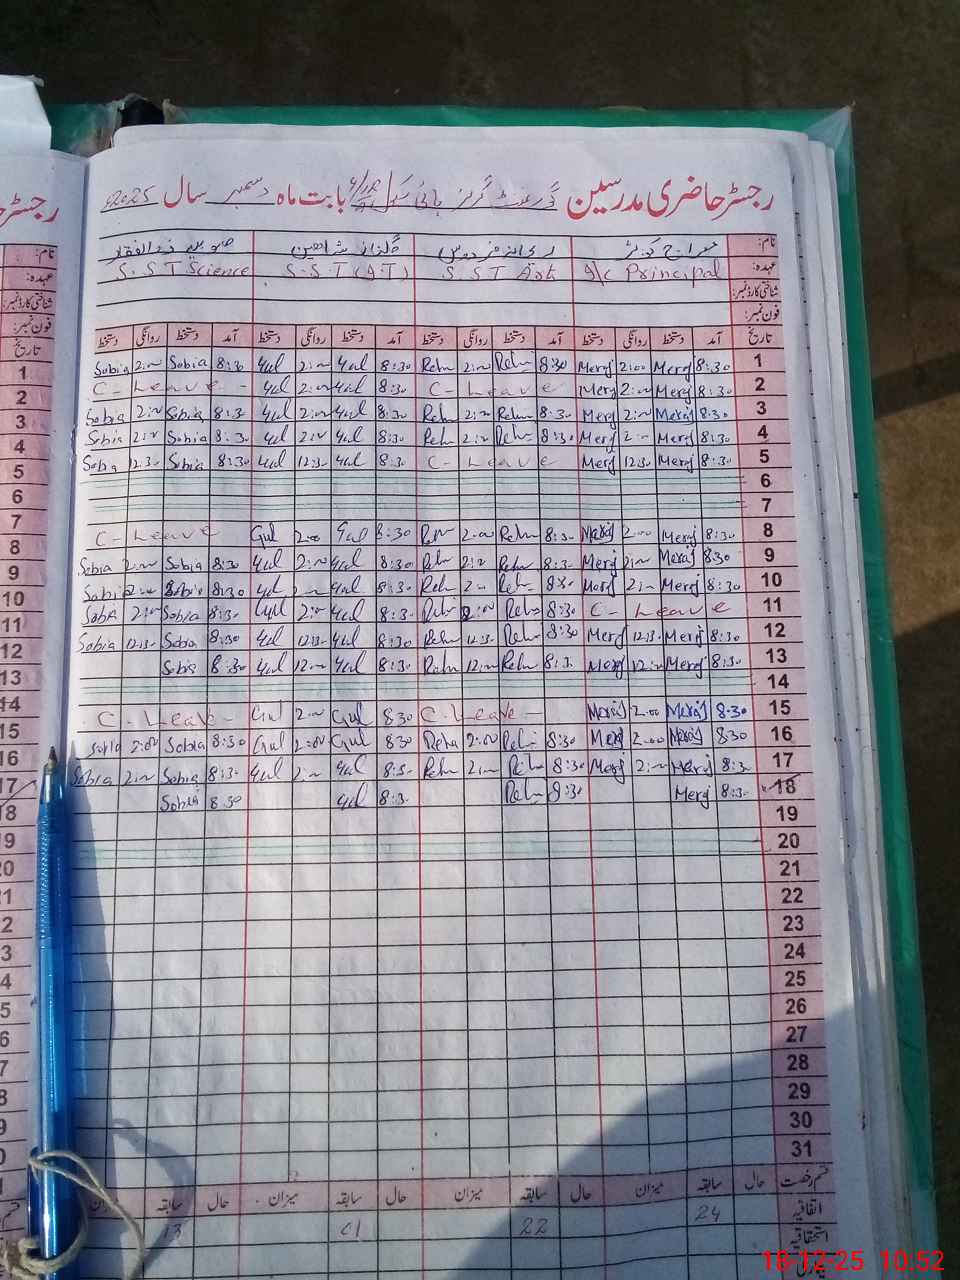 رجسٹر حاضری مدرسین گورنمنٹ گرلز ہائی سکول بابت ماہ دسمبر سال 2025ء
نام: معراج کوثر ریحانہ فردوس گلناز شاہین صوبیہ ذوالفقار
عہدہ: I/c Principal S S T Art S.S T (IT) S.S T Science
شناختی کارڈ نمبر:
فون نمبر:
تاریخ آمد دستخط روانگی دستخط آمد دستخط روانگی دستخط آمد دستخط روانگی دستخط آمد دستخط روانگی دستخط
1 8:30 Merj 2:00 Merj 8:30 Rehn 2:00 Rehn 8:30 Gul 2:00 Gul 8:30 Sobia 2:00 Sobia
2 8:30 Merj 2:00 Merj C - Leave 8:30 Gul 2:00 Gul C - Leave
3 8:30 Meraj 2:00 Merj 8:30 Rehn 2:00 Rehn 8:30 Gul 2:00 Gul 8:30 Sobia 2:00 Sobia
4 8:30 Merj 2:00 Merj 8:30 Rehn 2:00 Rehn 8:30 Gul 2:00 Gul 8:30 Sobia 2:00 Sobia
5 8:30 Merj 12:30 Merj C - Leave 8:30 Gul 12:30 Gul 8:30 Sobia 12:30 Sobia
6
7
8 8:30 Merj 2:00 Meraj 8:30 Rehn 2:00 Rehn 8:30 Gul 2:00 Gul C - Leave
9 8:30 Meraj 2:00 Merj 8:30 Rehn 2:00 Rehn 8:30 Gul 2:00 Gul 8:30 Sobia 2:00 Sobia
10 8:30 Merj 2:00 Merj 8:30 Rehn 2:00 Rehn 8:30 Gul 2:00 Gul 8:30 Sobia 2:00 Sobia
11 C - Leave 8:30 Rehn 2:00 Rehn 8:30 Gul 2:00 Gul 8:30 Sobia 2:00 Sobia
12 8:30 Merj 12:30 Merj 8:30 Rehn 12:30 Rehn 8:30 Gul 12:30 Gul 8:30 Sobia 12:30 Sobia
13 8:30 Merj 12:00 Merj 8:30 Rehn 12:00 Rehn 8:30 Gul 12:00 Gul 8:30 Sobia
14
15 8:30 Meraj 2:00 Meraj C - Leave 8:30 Gul 2:00 Gul C - Leave
16 8:30 Meraj 2:00 Merj 8:30 Reha 2:00 Reha 8:30 Gul 2:00 Gul 8:30 Sobia 2:00 Sobia
17 8:30 Meraj 2:00 Merj 8:30 Rehn 2:00 Rehn 8:30 Gul 2:00 Gul 8:30 Sobia 2:00 Sobia
18 8:30 Merj 8:30 Rehn 8:30 Gul 8:30 Sobia
19
20
21
22
23
24
25
26
27
28
29
30
31
قسم رخصت حال سابقہ میزان حال سابقہ میزان حال سابقہ میزان حال سابقہ میزان
اتفاقیہ 24 22 01 13
استحقاقیہ
18-12-25 10:52